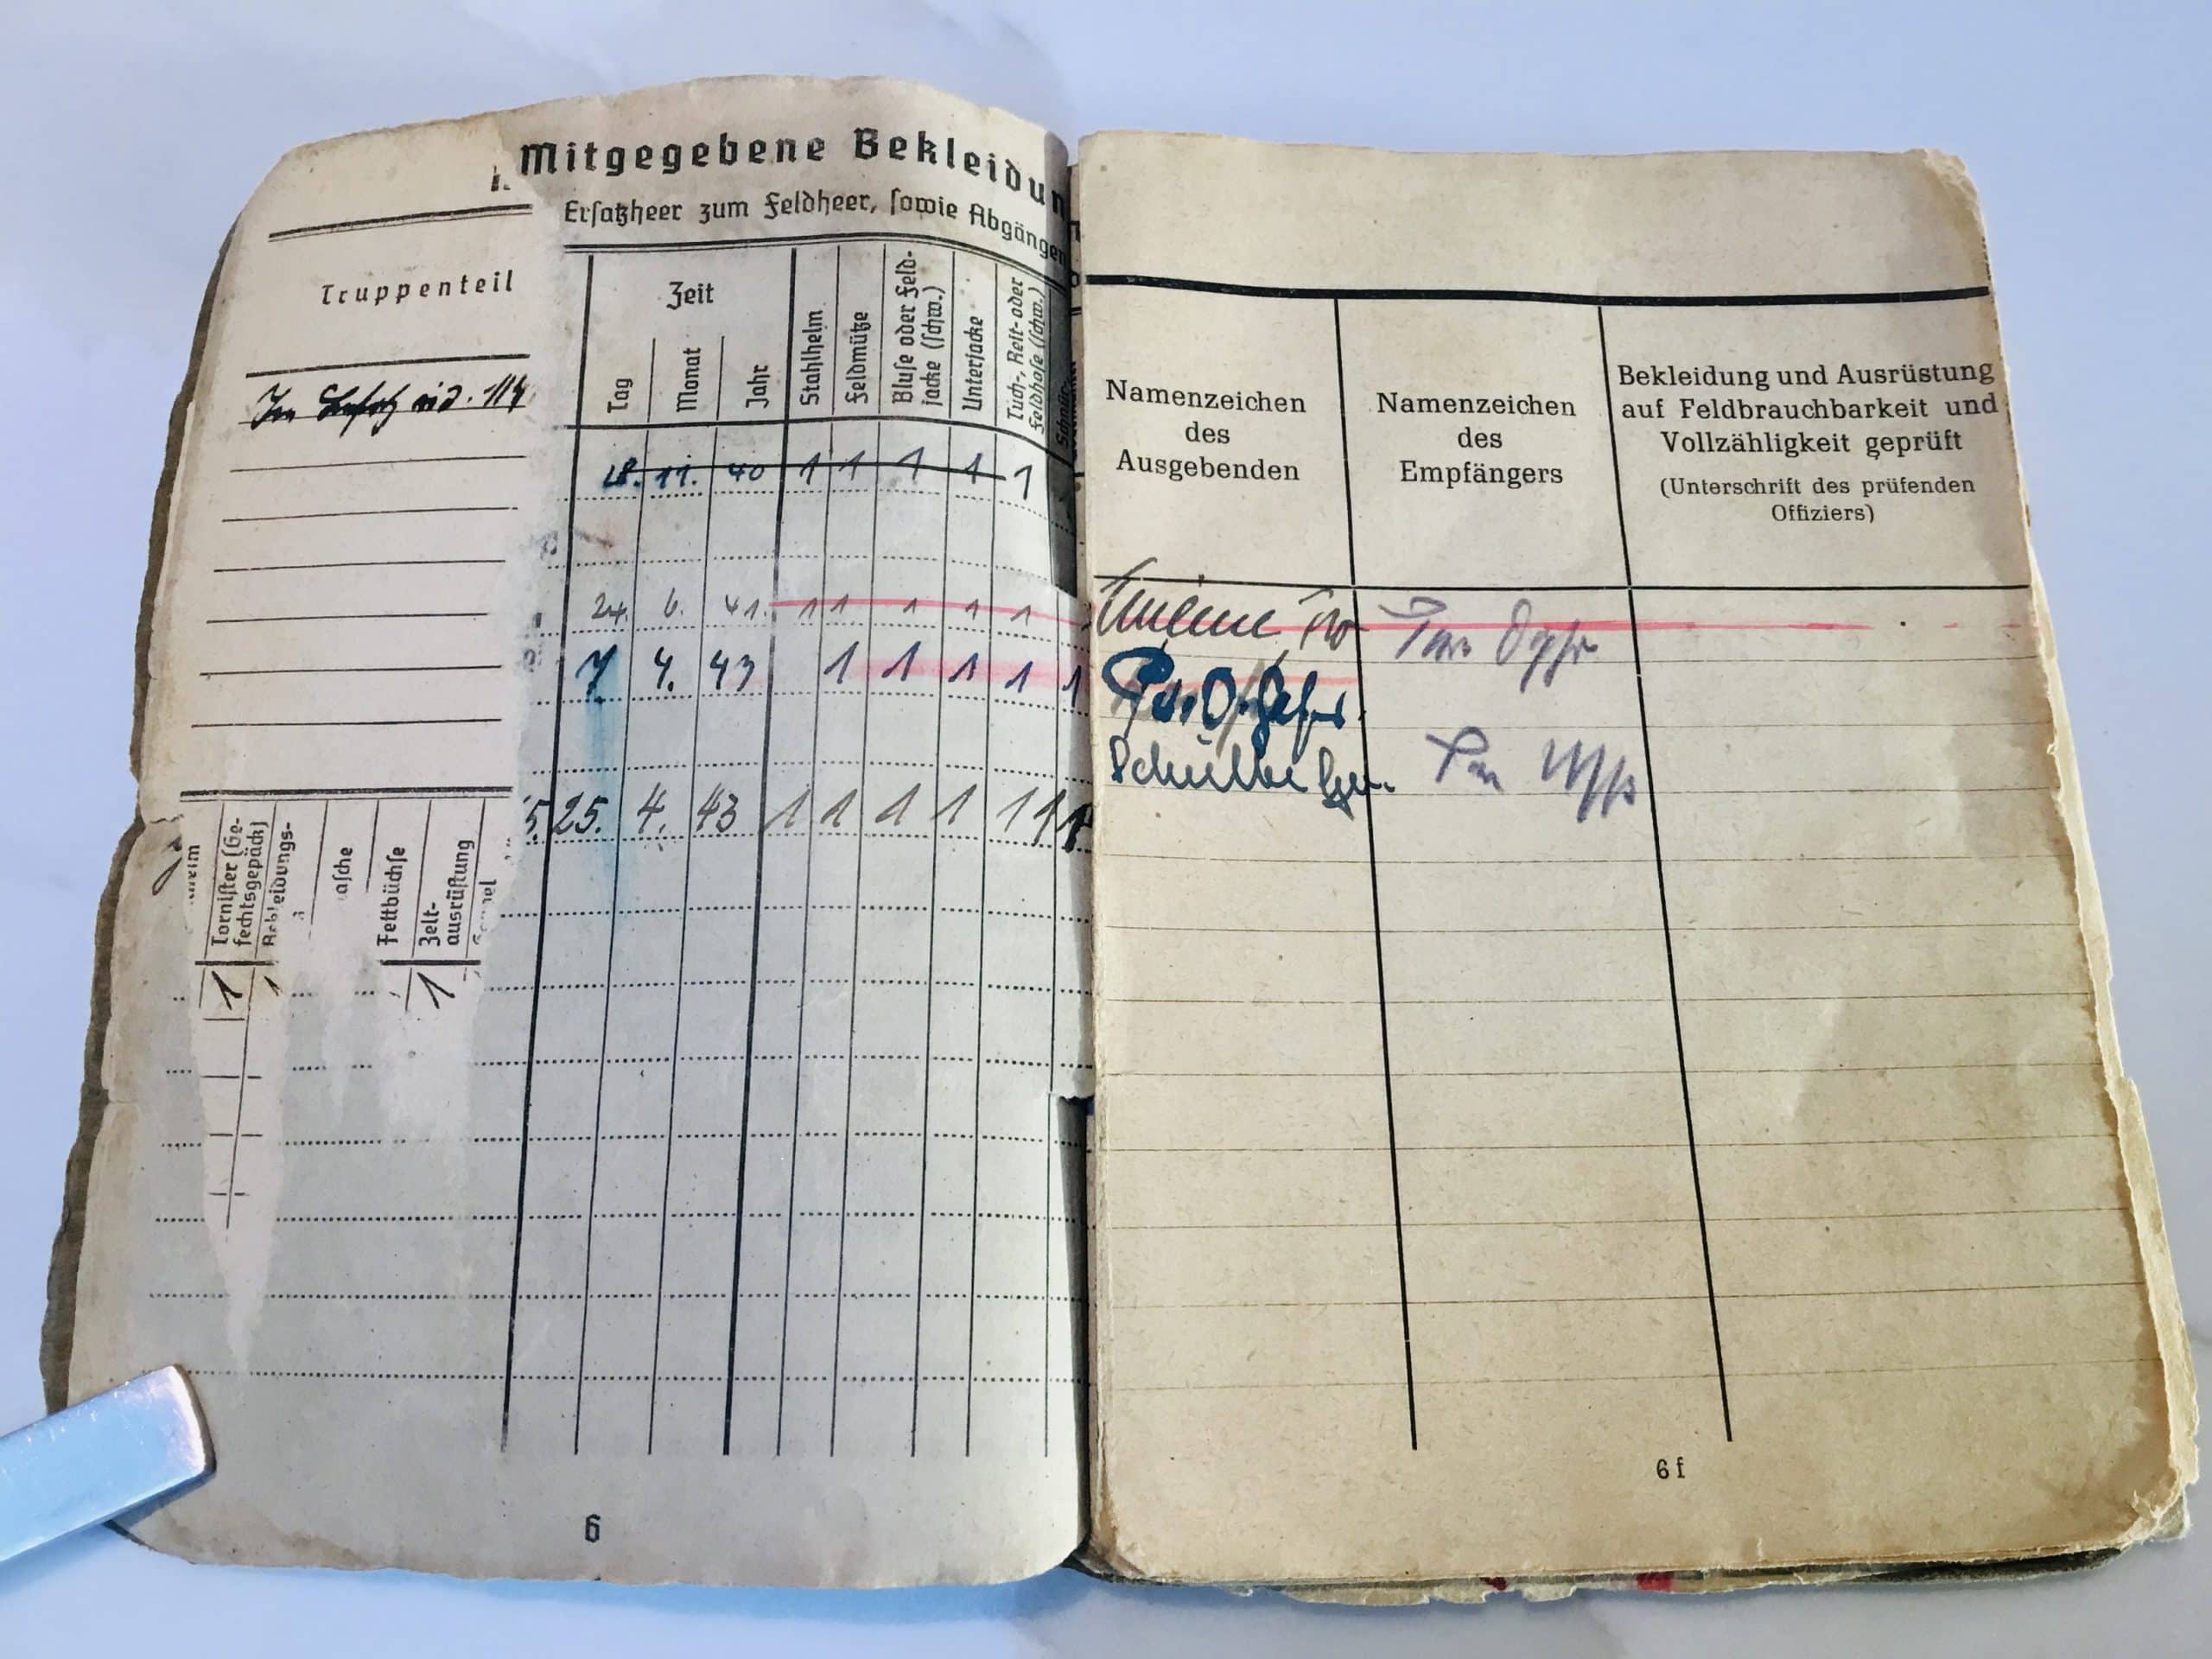 Mitgegebene Bekleidun
Ersatzheer zum Feldheer, sowie Abgänge
Truppenteil
Zeit
Tag
Monat
Jahr
Stahlhelm
Feldmütze
Bluse oder Feld-
jacke (schw.)
Unterjacke
Tuch-, Reit- oder
Feldhose (schw.)
114
18. 11. 40 1 1 1 1 1
24. 6. 41. 1 1 1 1 1
7. 4. 43 1 1 1 1 1
25. 4. 43 1 1 1 1 1 1 1
Tornister (Ge-
fechtsgepäck)
Bekleidungs-
asche
Fettbüchse
Zelt-
ausrüstung
1 1 1
6
Namenzeichen
des
Ausgebenden
Namenzeichen
des
Empfängers
Bekleidung und Ausrüstung
auf Feldbrauchbarkeit und
Vollzähligkeit geprüft
(Unterschrift des prüfenden
Offiziers)
6 f